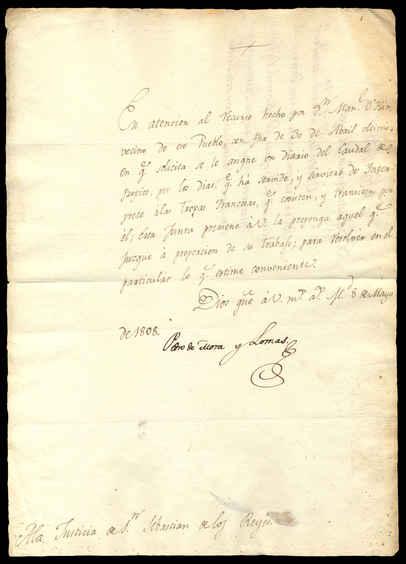 En atencion al recurso hecho por Dn. Manl.
vecino de ese Pueblo, con fha de 30 de Abril ultimo,
en qe. solicita se le asigne un diario del Caudal de
Propios, por los dias, qe. ha servido, y servirá de Inter-
prete á las Tropas Francesas, qe. concurren, y transiten por
él; esta Junta previene á V. la proponga aquel qe.
juzgue á proporcion de su trabajo; para resolver en el
particular lo qe. estime conveniente.
Dios gue. á V. ms. as. Md. 3 de Mayo
de 1808.
Pedro de Mora y Lomas
A la Justicia de Sn. Sebastian de los Reyes.